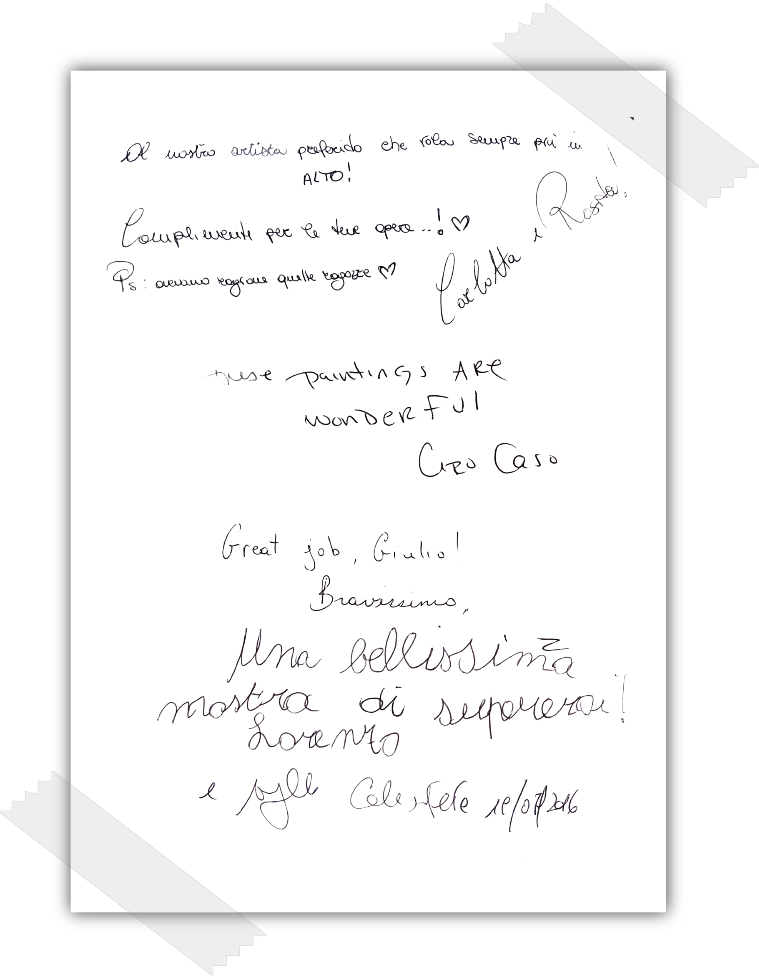 Al nostro artista preferito che vola sempre più in
ALTO!
Complimenti per le tue opere..! ♡
Ps: avevano ragione quelle ragazze ♡
Carlotta e Rosita!
These paintings ARE
wonDERFUl
Ciro Caso
Great job, Giulio!
Bravissimo,
Una bellissima
mostra di
Lorenzo
e